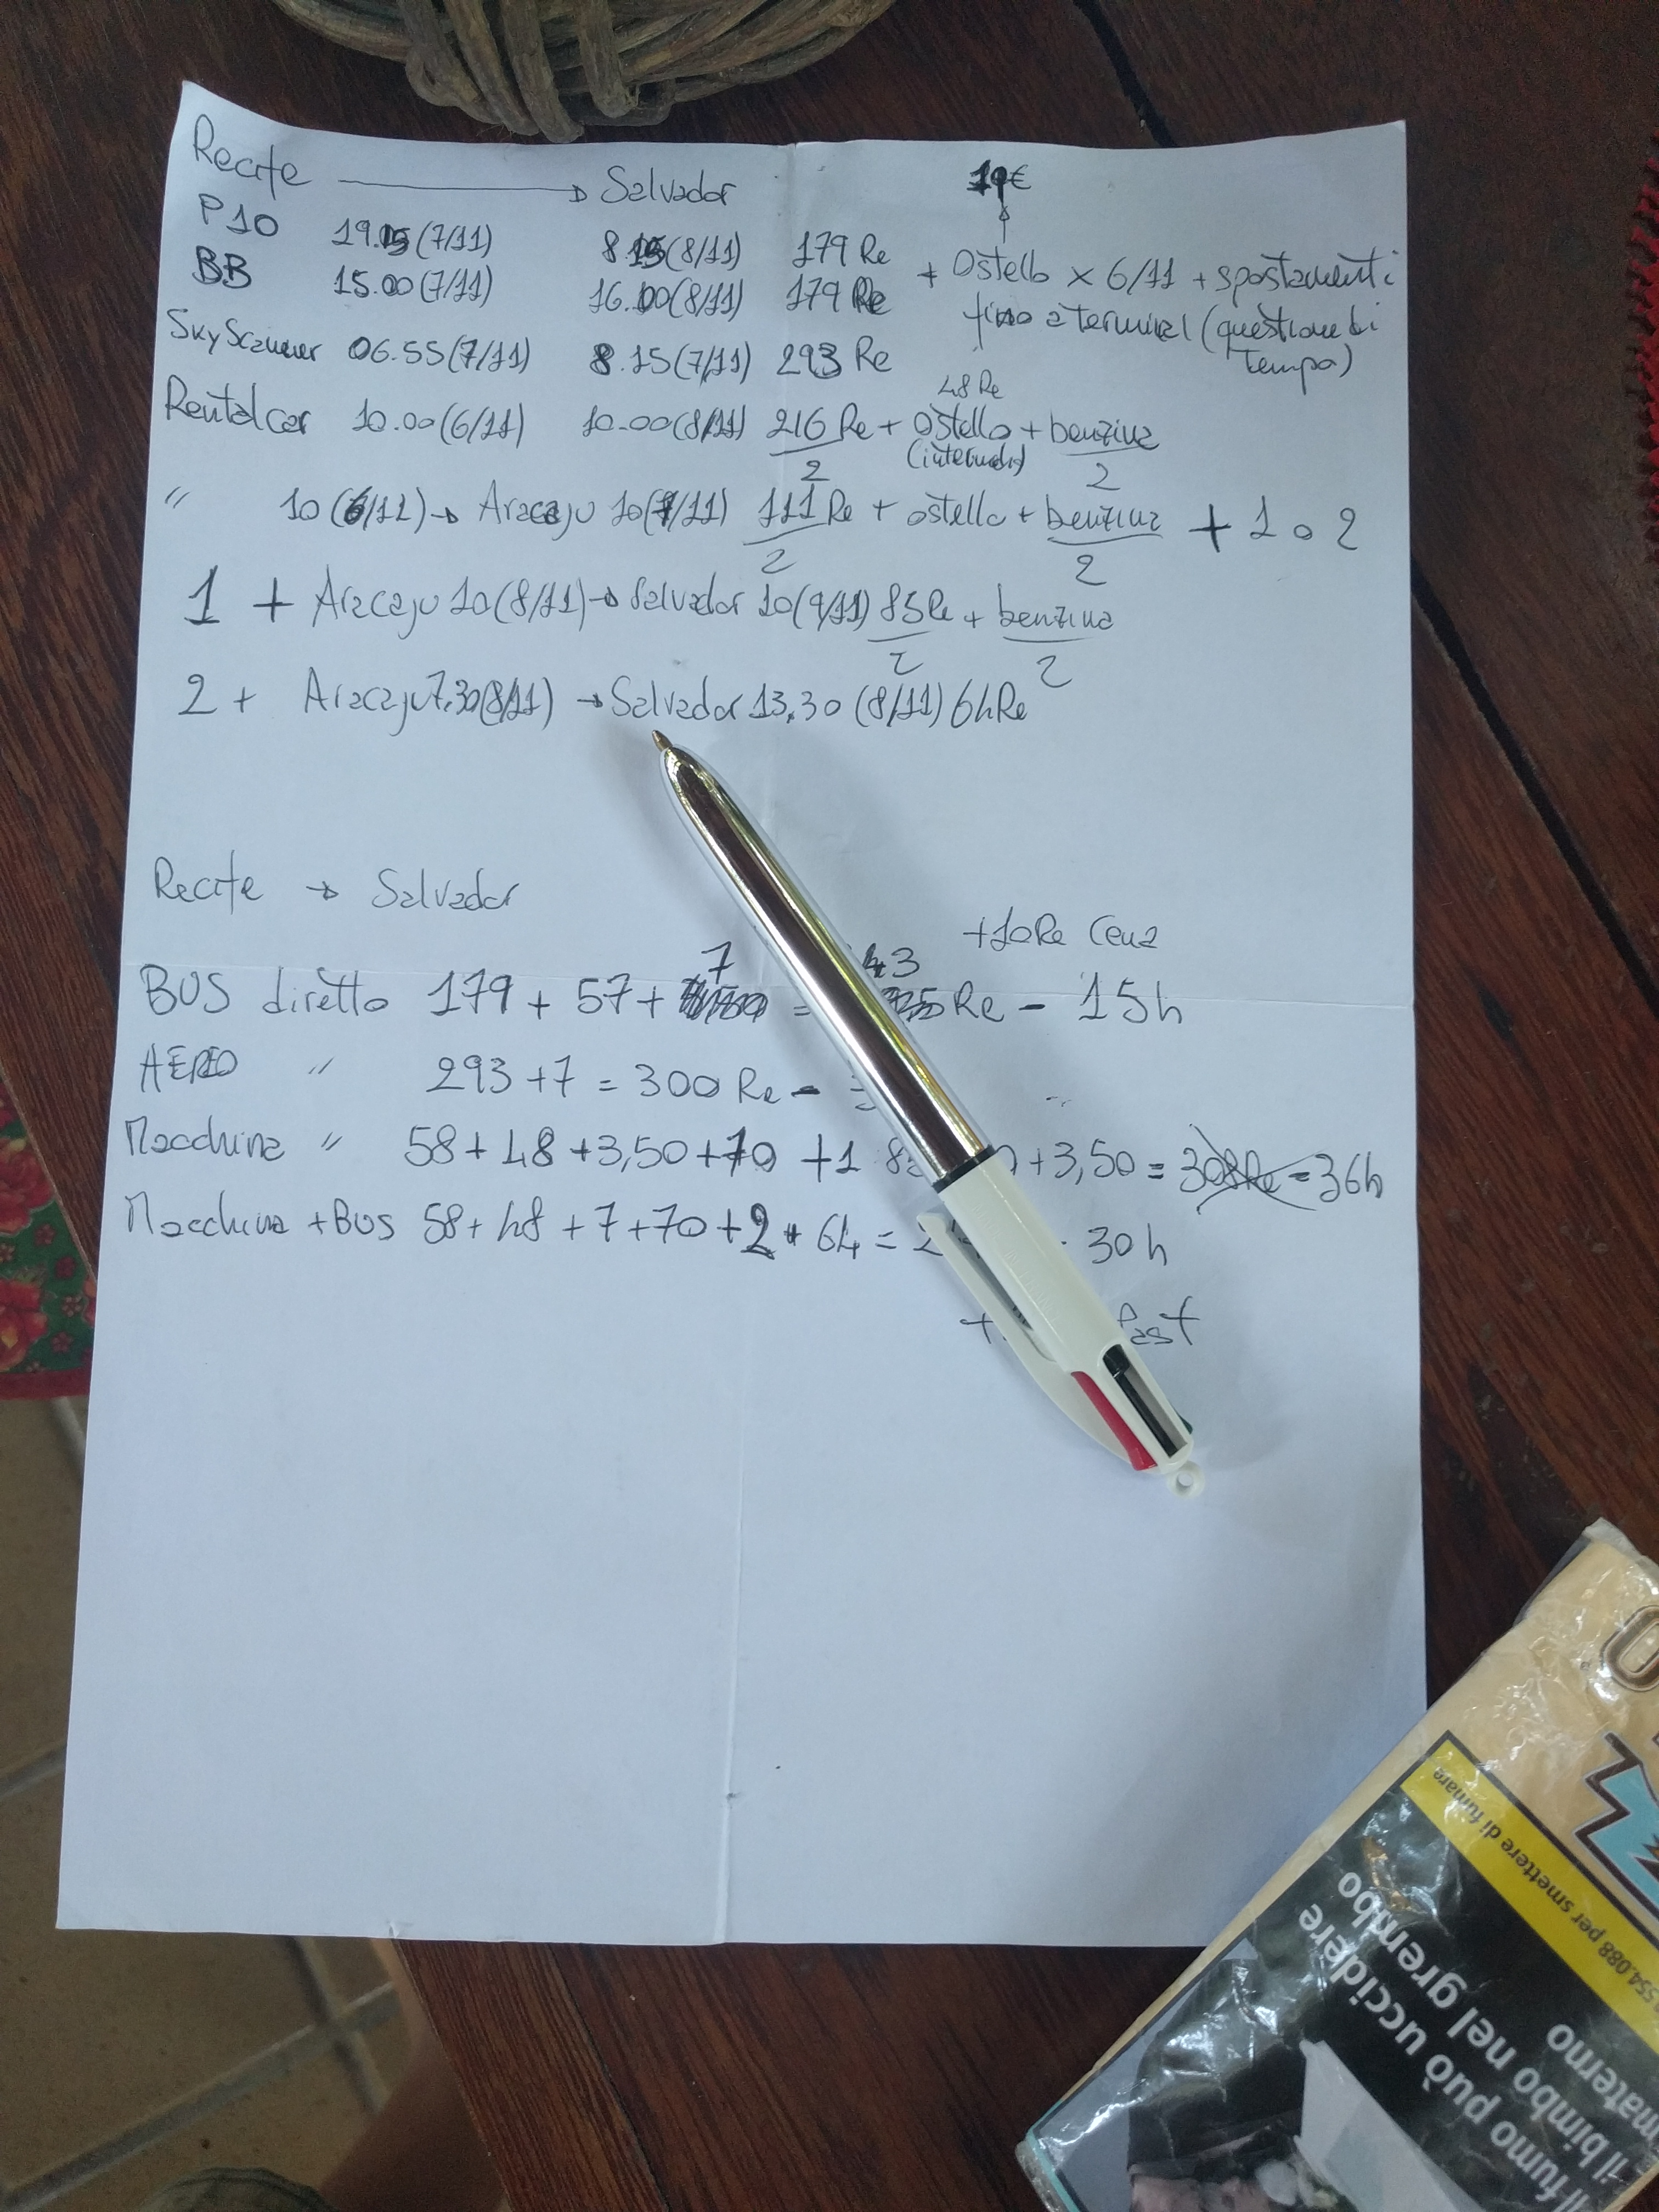 Recife → Salvador 19€
P10 19.15 (7/11) 8.15 (8/11) 179 Re
BB 15.00 (7/11) 16.00 (8/11) 179 Re + Ostello x 6/11 + spostamenti
fino a terminal (questione di
tempo)
SkyScanner 06.55 (7/11) 8.15 (7/11) 293 Re
48 Re
Rentalcar 10.00 (6/11) 10.00 (8/11) 216 Re/2 + Ostello + benzina/2
(intermedio)
" 10 (6/11) → Aracaju 10 (7/11) 111 Re/2 + ostello + benzina/2 + 1 o 2
1 + Aracaju 10 (8/11) → Salvador 10 (9/11) 85 Re/2 + benzina/2
2 + Aracaju 7.30 (8/11) → Salvador 13.30 (8/11) 64 Re
Recife → Salvador
+10 Re Cena
BUS diretto 179 + 57 + 7 = 43 Re - 15h
AEREO " 293 + 7 = 300 Re -
Macchina " 58 + 48 + 3,50 + 70 + 1 + 3,50 = 308 Re - 36h
Macchina + BUS 58 + 48 + 7 + 70 + 2 + 64 = 30 h
554.088 per smettere di fumare
il fumo può uccidere
il bimbo nel grembo
materno